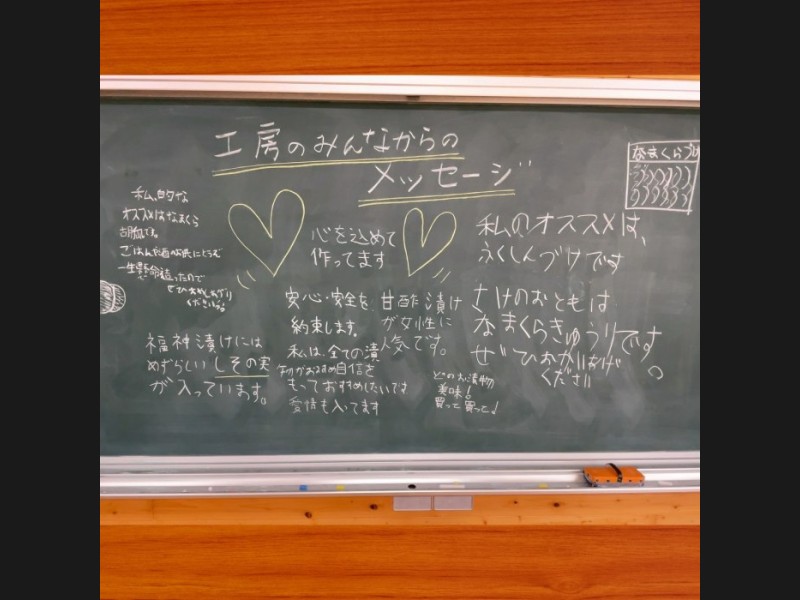 工房のみんなからの
メッセージ
なまくらづけ
私的な
オススメはなまくら
胡瓜です。
ごはんや酒のお共にどうぞ
一生懸命植ったので
ぜひおめしあがり
くださいね。
心を込めて
作ってます
私のオススメは、
ふくしんづけです
さけのおともは
なまくらきゅうりです。
ぜひおかいあげ
ください
安心・安全を
約束します。
甘酢漬け
が女性に
人気です。
私は、全ての漬
物がおすすめ自信を
もっておすすめしたいです
愛情も入ってます
福神漬けには
めずらしいしその実
が入っています。
どのお漬物
美味!
買って買って!